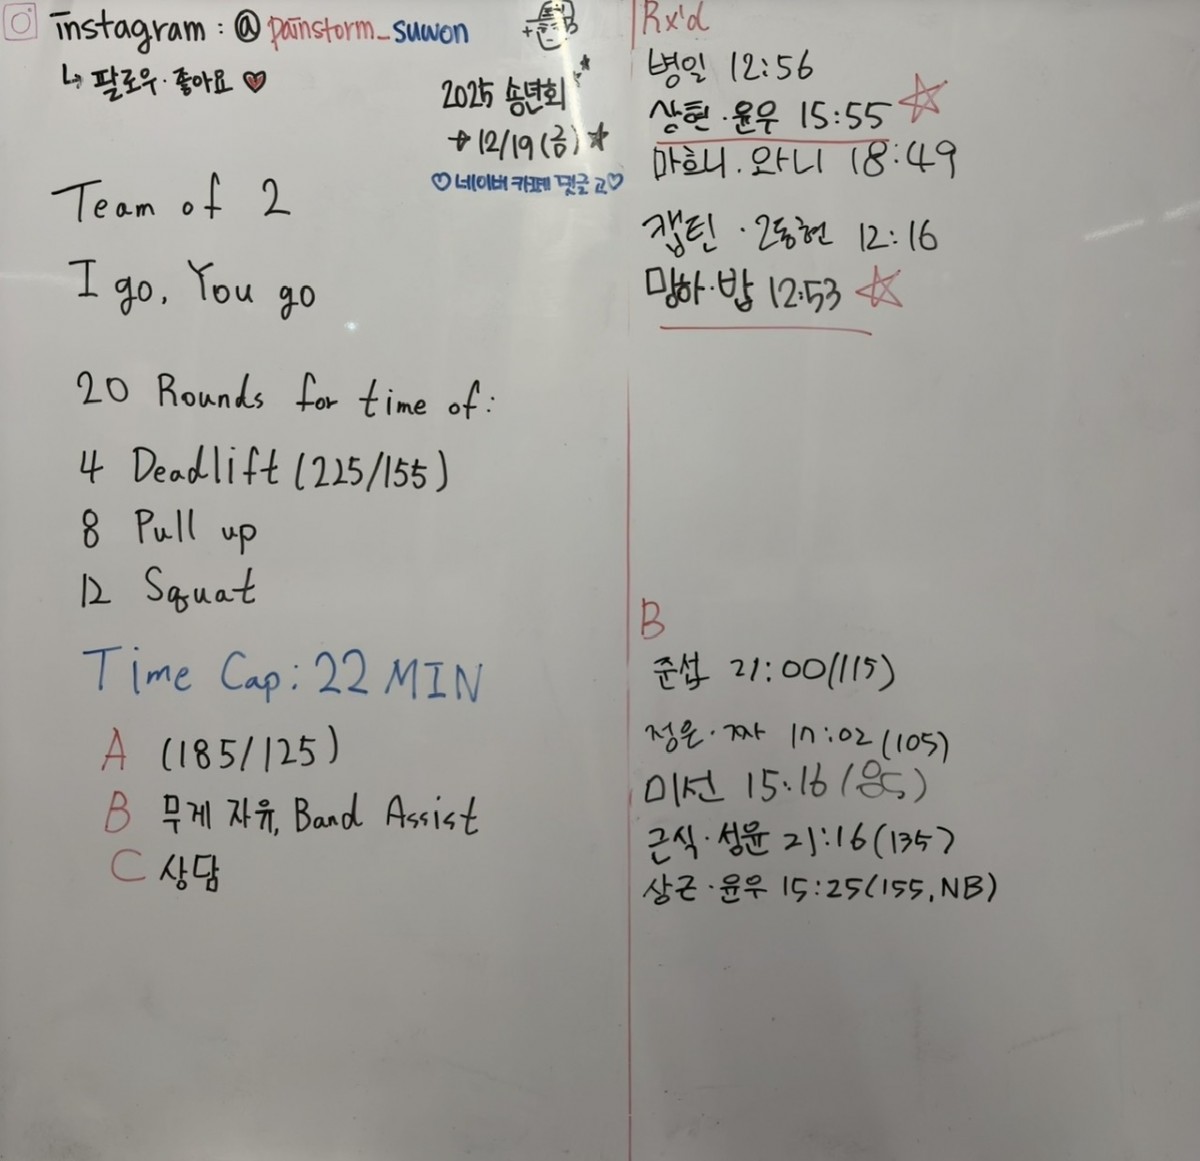 instagram : @ painstorm_suwon
↳ 팔로우·좋아요 ♥
2025 송년회
→ 12/19 (금) ★
♡네이버 카페 댓글 고♡
Team of 2
I go, You go
20 Rounds for time of:
4 Deadlift (225/155)
8 Pull up
12 Squat
Time Cap: 22 MIN
A (185/125)
B 무게 자유, Band Assist
C 상담
Rx'd
병일 12:56
상현·윤우 15:55
마흐니·와니 18:49
캡틴·2동현 12:16
밍하·밥 12:53
B
준섭 21:00(115)
정은·짜 17:02(105)
미선 15:16
근식·성윤 21:16(135)
상근·윤우 15:25(155, NB)